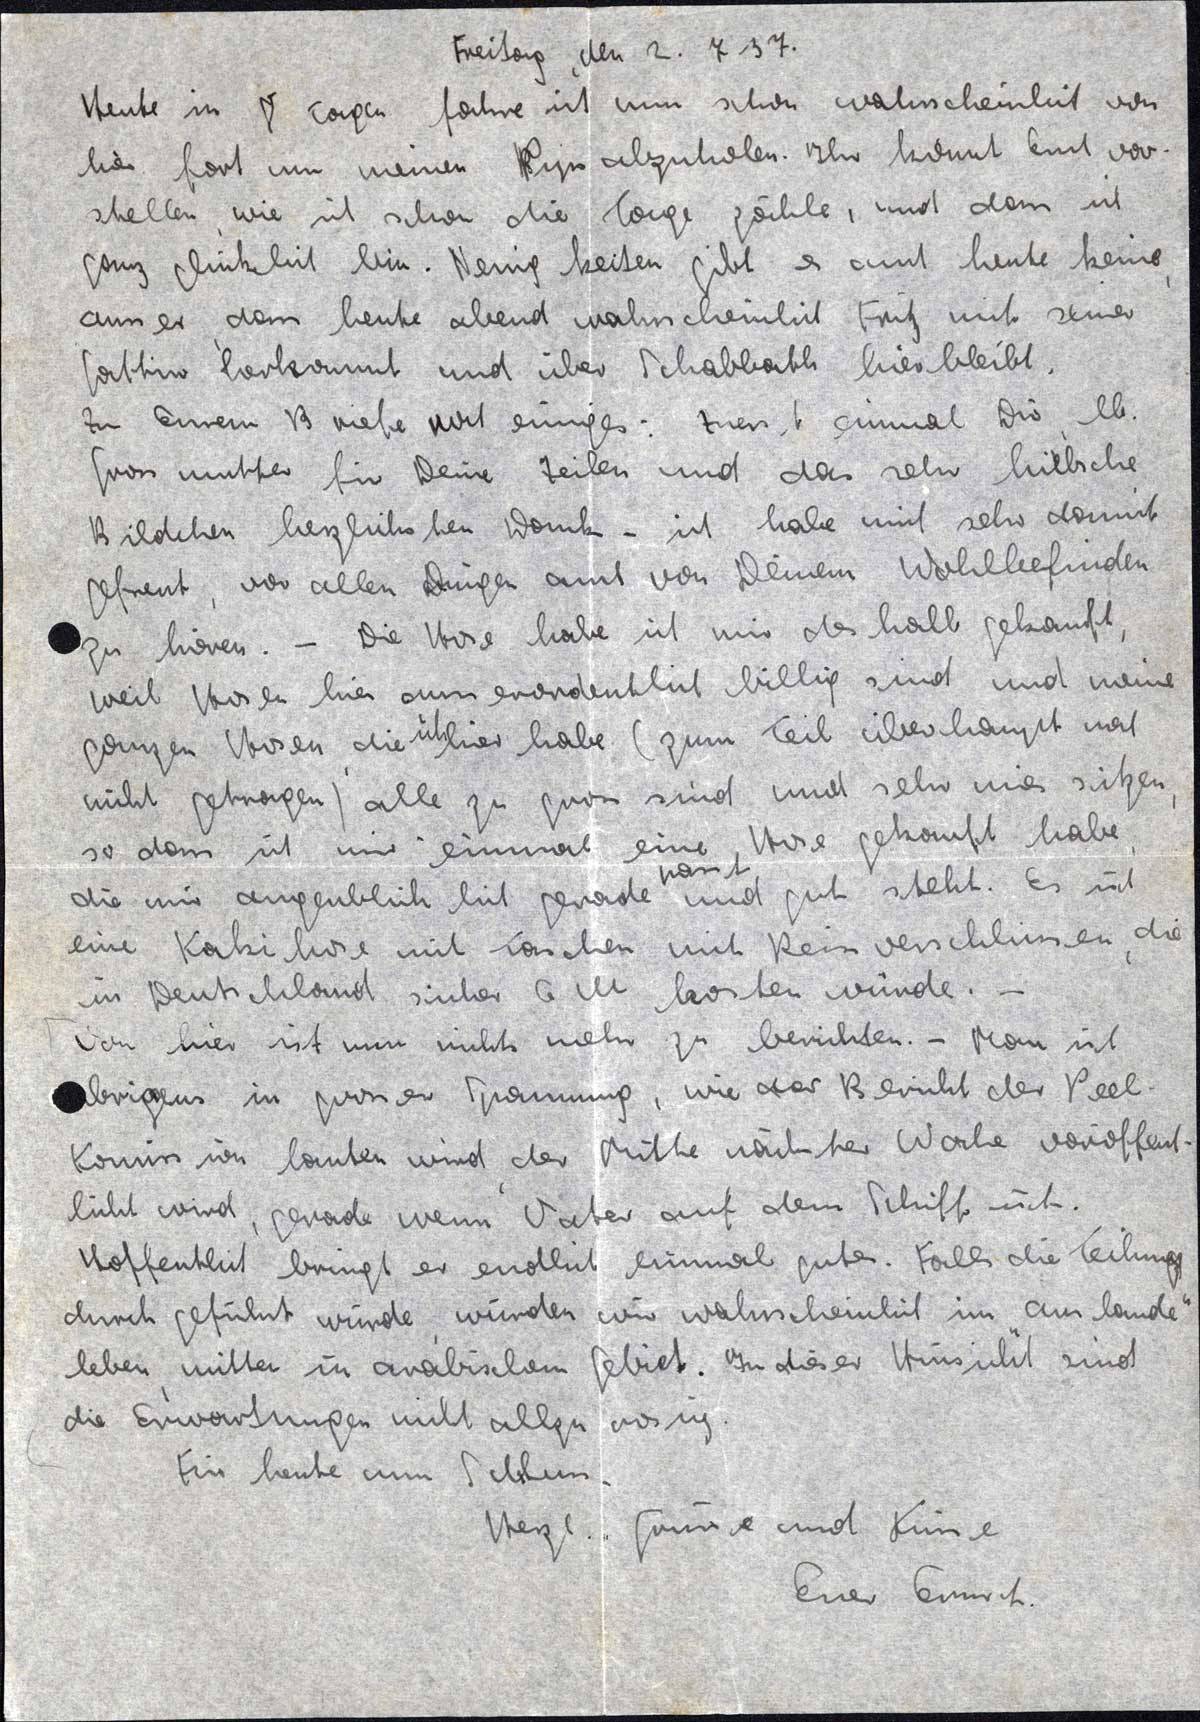 Freitag, den 2. 7 37.
Heute in 8 Tagen fahre ich nun schon wahrscheinlich von
hier fort um meinen abzuholen. Ihr könnt Euch vor-
stellen, wie ich schon die Tage zähle, und dass ich
ganz glücklich bin. Neuigkeiten gibt es auch heute keine,
ausser, dass heute abend wahrscheinlich Fritz mit seiner
Gattin herkommt und über Schabbath hierbleibt.
Zu Eurem Briefe noch einiges: Zuerst einmal Dir, lb.
Grossmutter für Deine Zeilen und das sehr hübsche
Bildchen herzlichsten Dank – ich habe mich sehr damit
gefreut, vor allen Dingen auch von Deinem Wohlbefinden
zu hören. – Die Hose habe ich mir deshalb gekauft,
weil Hosen hier ausserordentlich billig sind und meine
ganzen Hosen, die ich hier habe (zum Teil überhaupt noch
nicht getragen) alle zu gross sind und sehr mies sitzen,
so dass ich mir einmal eine Hose gekauft habe,
die mir augenblicklich gerade passt und gut steht. Es ist
eine Kakihose mit Taschen mit Reissverschlüssen, die
in Deutschland sicher 6 M kosten würde. –
Von hier ist nun nichts mehr zu berichten. – Man ist
übrigens in grosser Spannung, wie der Bericht der Peel-
Komission lauten wird, der Mitte nächster Woche veröffent-
licht wird, gerade wenn Vater auf dem Schiff ist.
Hoffentlich bringt er endlich einmal gutes. Falls die Teilung
durchgeführt würde, würden wir wahrscheinlich im „Auslande“
leben, mitten in arabischem Gebiet. In dieser Hinsicht sind
die Erwartungen nicht allzu rosig.
Für heute nun Schluss.
Herzl. Grüsse und Küsse
Euer